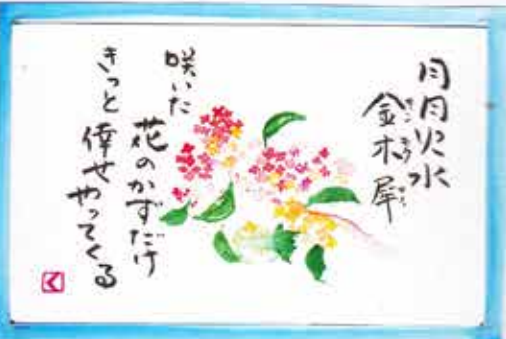 月月火水
金木犀
キンモクセイ
咲いた
花のかずだけ
きっと倖せやってくる
く